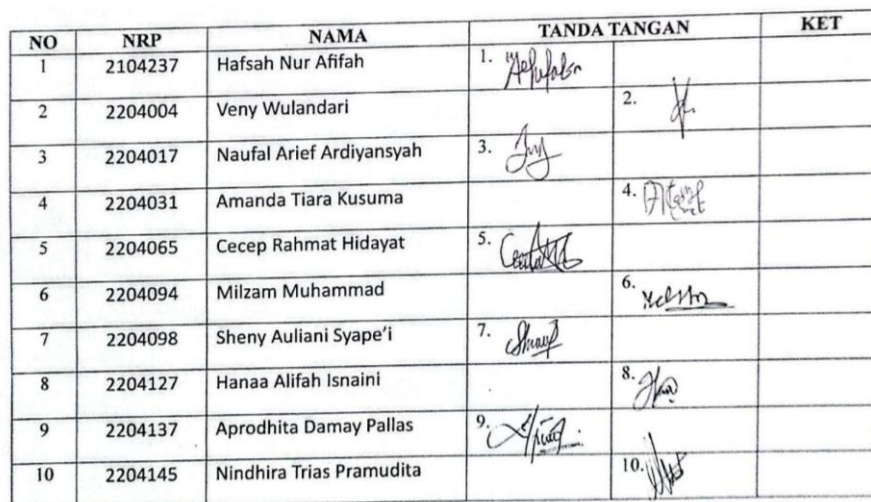 NO NRP NAMA TANDA TANGAN KET
1 2104237 Hafsah Nur Afifah 1.
2 2204004 Veny Wulandari 2.
3 2204017 Naufal Arief Ardiyansyah 3.
4 2204031 Amanda Tiara Kusuma 4.
5 2204065 Cecep Rahmat Hidayat 5.
6 2204094 Milzam Muhammad 6.
7 2204098 Sheny Auliani Syape’i 7.
8 2204127 Hanaa Alifah Isnaini 8.
9 2204137 Aprodhita Damay Pallas 9.
10 2204145 Nindhira Trias Pramudita 10.